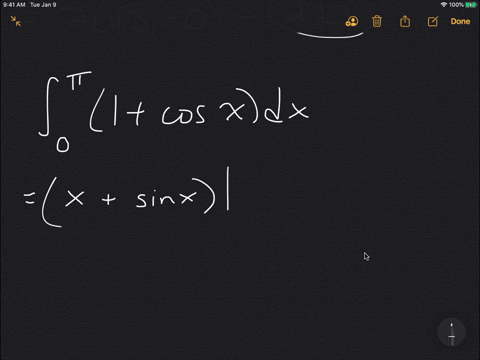 9:41 AM Tue Jan 9
100%
Done
∫₀^π (1 + cos x) dx
= (x + sinx) |